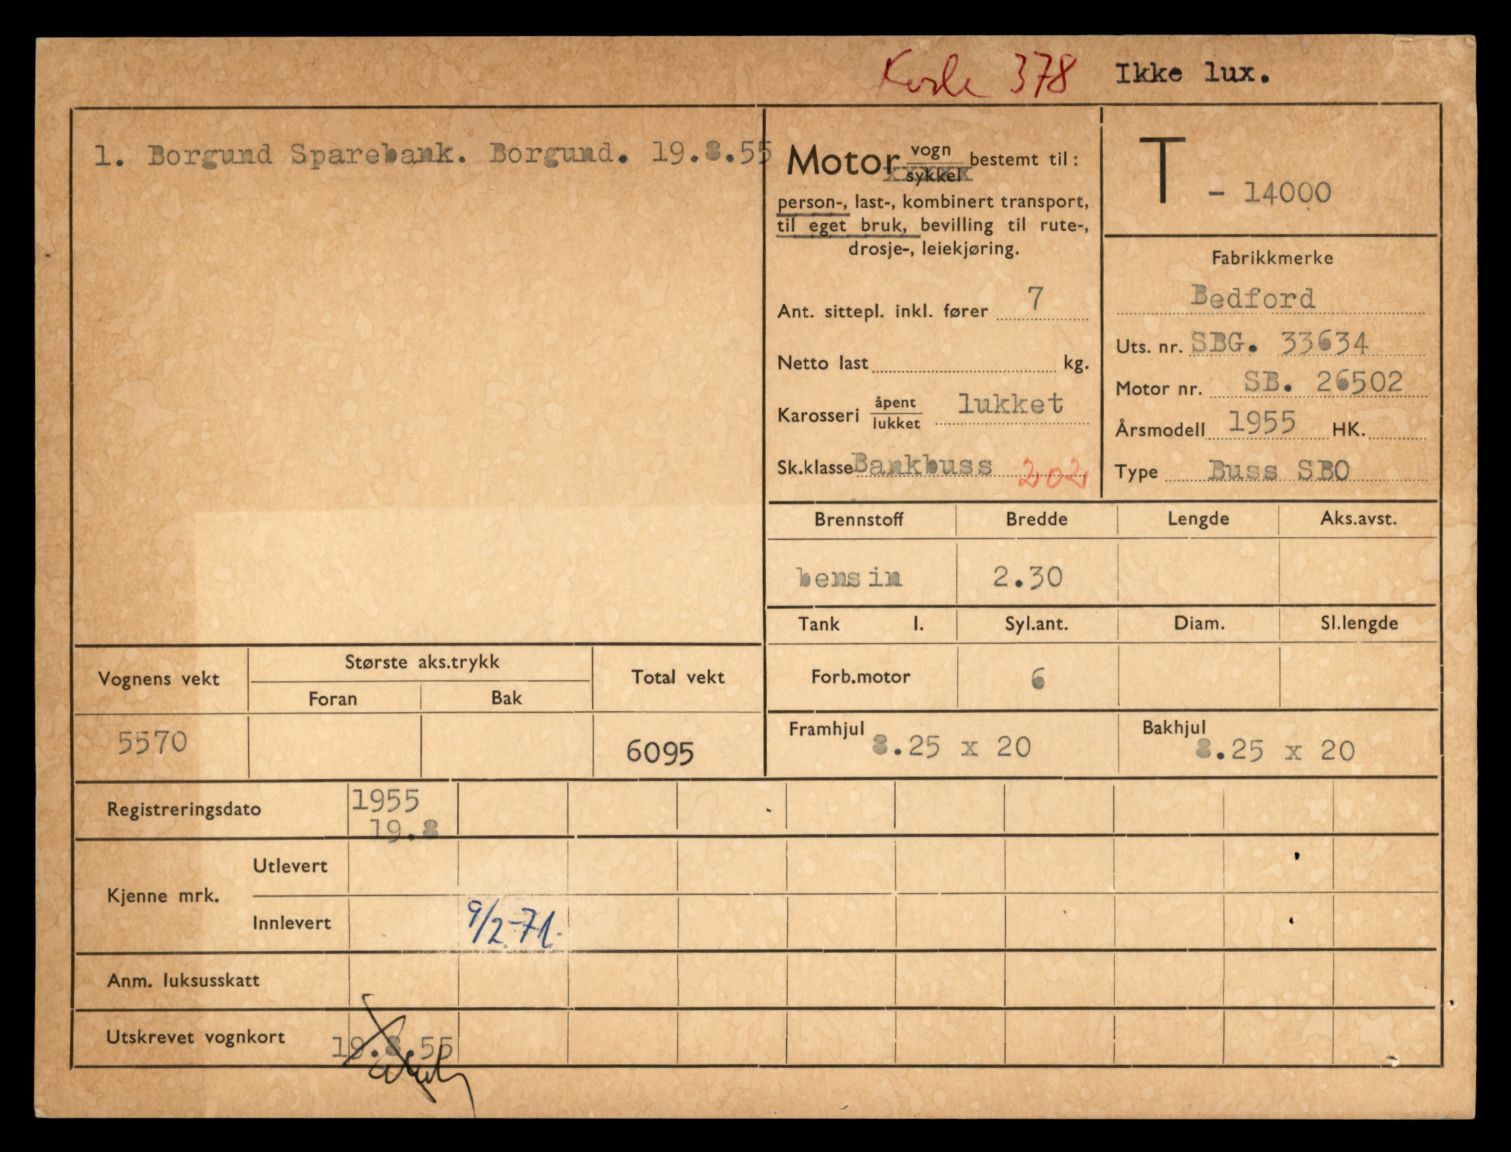 Kode 378 Ikke lux.
1. Borgund Sparebank. Borgund. 19.8.55
Motor vogn bestemt til :
sykkel
person-, last-, kombinert transport,
til eget bruk, bevilling til rute-,
drosje-, leiekjøring.
Ant. sittepl. inkl. fører 7
Netto last kg.
Karosseri åpent lukket
lukket
Sk.klasse Bankbuss 202
T - 14000
Fabrikkmerke
Bedford
Uts. nr. SBG. 33634
Motor nr. SB. 26502
Årsmodell 1955 HK.
Type Buss SBO
Brennstoff Bredde Lengde Aks.avst.
bensin 2.30
Tank l. Syl.ant. Diam. Sl.lengde
Forb.motor 6
Framhjul 8.25 x 20 Bakhjul 8.25 x 20
Vognens vekt Største aks.trykk Total vekt
Foran Bak
5570 6095
Registreringsdato 1955
19.8
Kjenne mrk. Utlevert
Innlevert 9/2-71.
Anm. luksusskatt
Utskrevet vognkort 19.8 55